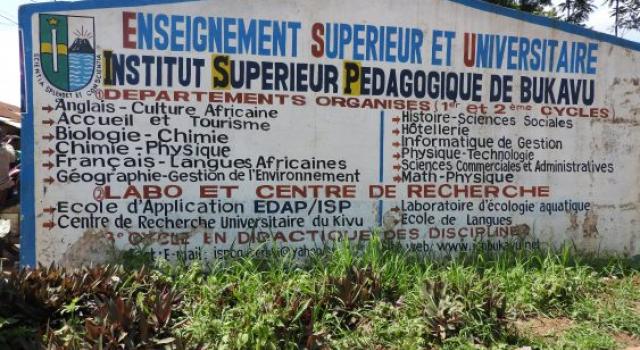 ENSEIGNEMENT SUPERIEUR ET UNIVERSITAIRE
INSTITUT SUPERIEUR PEDAGOGIQUE DE BUKAVU
SCIENTIA SPLENDET ET CONSCIENTIA
① DEPARTEMENTS ORGANISES (1er et 2ème CYCLES)
Anglais - Culture Africaine
Accueil et Tourisme
Biologie - Chimie
Chimie - Physique
Français - Langues Africaines
Géographie - Gestion de l'Environnement
Histoire - Sciences Sociales
Hôtellerie
Informatique de Gestion
Physique - Technologie
Sciences Commerciales et Administratives
Math - Physique
② LABO ET CENTRE DE RECHERCHE
Ecole d'Application EDAP/ISP
Centre de Recherche Universitaire du Kivu
Laboratoire d'écologie aquatique
École de Langues
3e CYCLE EN DIDACTIQUE DES DISCIPLINES
E-Mail:
web: www.ispbukavu.net